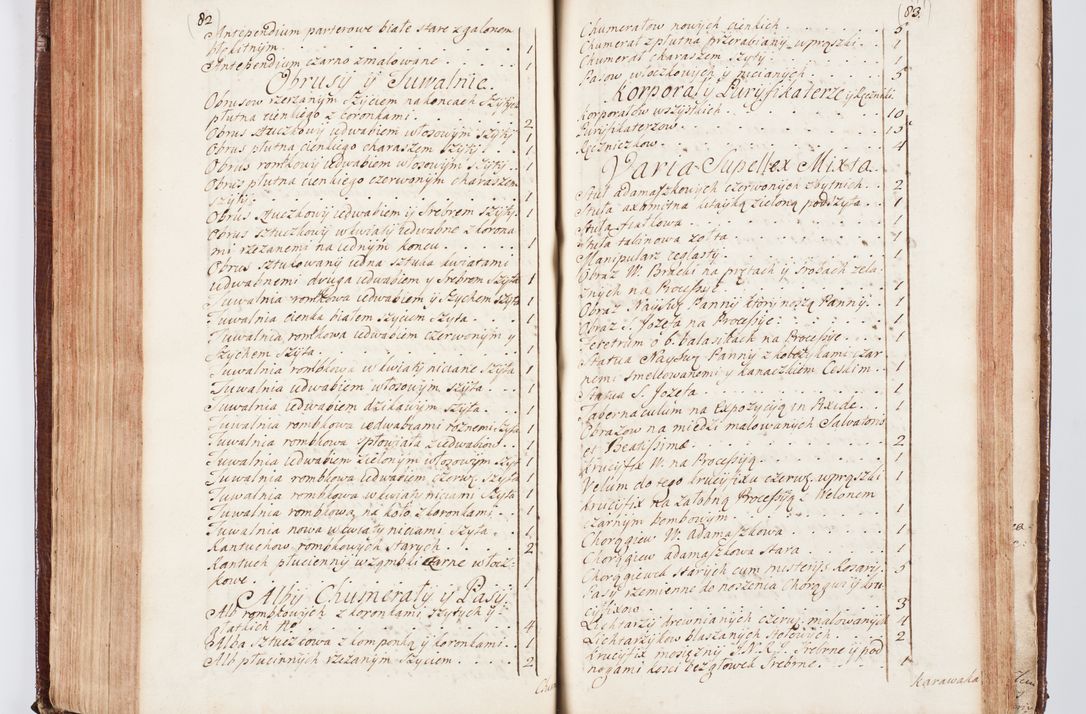 82
Antependium parterowe białe stare z galonem
błękitnym. 1
Antependium czarno zmalowane 1
Obrusy ÿ Tuwalnie.
Obrusow rzerzanym szÿciem na koncach szÿtÿch
płutna cienkiego z coronkami 2
Obrus sztuczkowÿ iedwabiem włosowÿm szÿtÿ 1
Obrus płutna cienkiego charaszem szÿtÿ 1
Obrus rombkowÿ iedwabiem włosowÿm szÿtÿ 1
Obrus płutna cienkiego czerwonÿm charaszem
szÿtÿ 1
Obrus sztuczkowÿ iedwabiem ÿ srebrem szÿtÿ 1
Obrus sztuczkowÿ w kwiatÿ iedwabne z korona
mi rzezanemi na iednÿm koncu 1
Obrus sztukowanÿ iedna sztuka kwiatami
iedwabnemi druga iedwabiem ÿ srebrem szÿta 1
Tuwalnia rombkowa iedwabiem ÿ szÿchem szÿta 1
Tuwalnia cienka białem szÿciem szÿta 1
Tuwalnia rombkowa iedwabiem czerwonÿm ÿ
szÿchem szÿta 1
Tuwalnia rombkowa w kwiatÿ niciane szÿta 1
Tuwalnia iedwabiem włosowÿm szÿta 1
Tuwalnia iedwabiem dzikawÿm szÿta 1
Tuwalnia rombkowa iedwabiami roznemi szÿta 1
Tuwalnia rombkowa spłowiała z iedwabiow 1
Tuwalnia iedwabiem zielonÿm włosowÿm szÿt 1
Tuwalnia rombkowa iedwabiem czerw. szÿta 1
Tuwalnia rombkowa w kwiatÿ niciami szÿta 1
Tuwalnia rombkowa na koło z koronkami 1
Tuwalnia nowa w kwiatÿ niciami szÿta 1
Kantuchow rombkowÿch starÿch 2
Kantuch płuciennÿ wzgmbki czarne włocz:
kowe 1
Albÿ Chumerałÿ ÿ Pasÿ
Alb rombkowÿch z koronkami szÿtÿch ÿ
gładkich No 4
Alba sztuczcowa z komponką ÿ koronkami 1
Alb płuciennÿch rzezanÿm szÿciem 2
Chum
83
Chumerałow nowÿch cienkich 3
Chumerał z płutna przerabianÿ w prązki 1
Chumerał charaszem szÿtÿ 1
Pasow włoczkowÿch ÿ nicianÿch 5
Korporałÿ Purÿfikaterze ÿ Ręczniki
Korporałow wszÿstkich 10
Purÿfikaterzow 15
Ręczniczkow 4
Varia Supellex Mixta.
Stuł adamaszkowÿch czerwonÿch zbÿtnich 2
Stuła axamitna kitaÿką zieloną podszÿta 1
Stuła fiałkowa 1
Stuła tabinowa zołta 1
Manipularz ceglastÿ 1
Obraz W. Bracki na prętach ÿ srobach zela
znÿch na Processÿe 1
Obraz Naÿśw Pannÿ ktorÿ noszą Pannÿ 1
Obraz S. Jozefa na Processÿe 1
Feretrum o 6. balasikach na Processÿe 1
Statua Naÿśw Pannÿ z kobeżÿkami czar
nemi smelcowanemi ÿ kanaczkiem Ceskim 1
Statua S. Jozefa 1
Tabernaculum na Expozÿcÿą in Pixide 1
Obrazow na miedzi malowanÿch Salvatoris
et Beatissimæ 2
Krucÿfix W. na Processÿą 1
Velum do tego krucÿfixu czerw. w prązki 1
Krucÿfix na załobną Processÿą z Welonem
czarnÿm bombowÿm 1
Chorągiew W. adamaszkowa 1
Chorągiew adamaszkowa stara 1
Chorągiewek starÿch cum misterÿs Rosarÿ 5
Pasÿ rzemienne do noszenia Chorągwi ÿ kru
cÿfixow 3
Lichtarzÿ drewnianÿch czerw. malowanÿch 4
Lichtarzÿkow blaszanÿch stołowÿch 2
Krucÿfix mosięznÿ J.N.R.J. srebrne ÿ pod
nogami kosci bez głowek srebrne 1
Karawaka